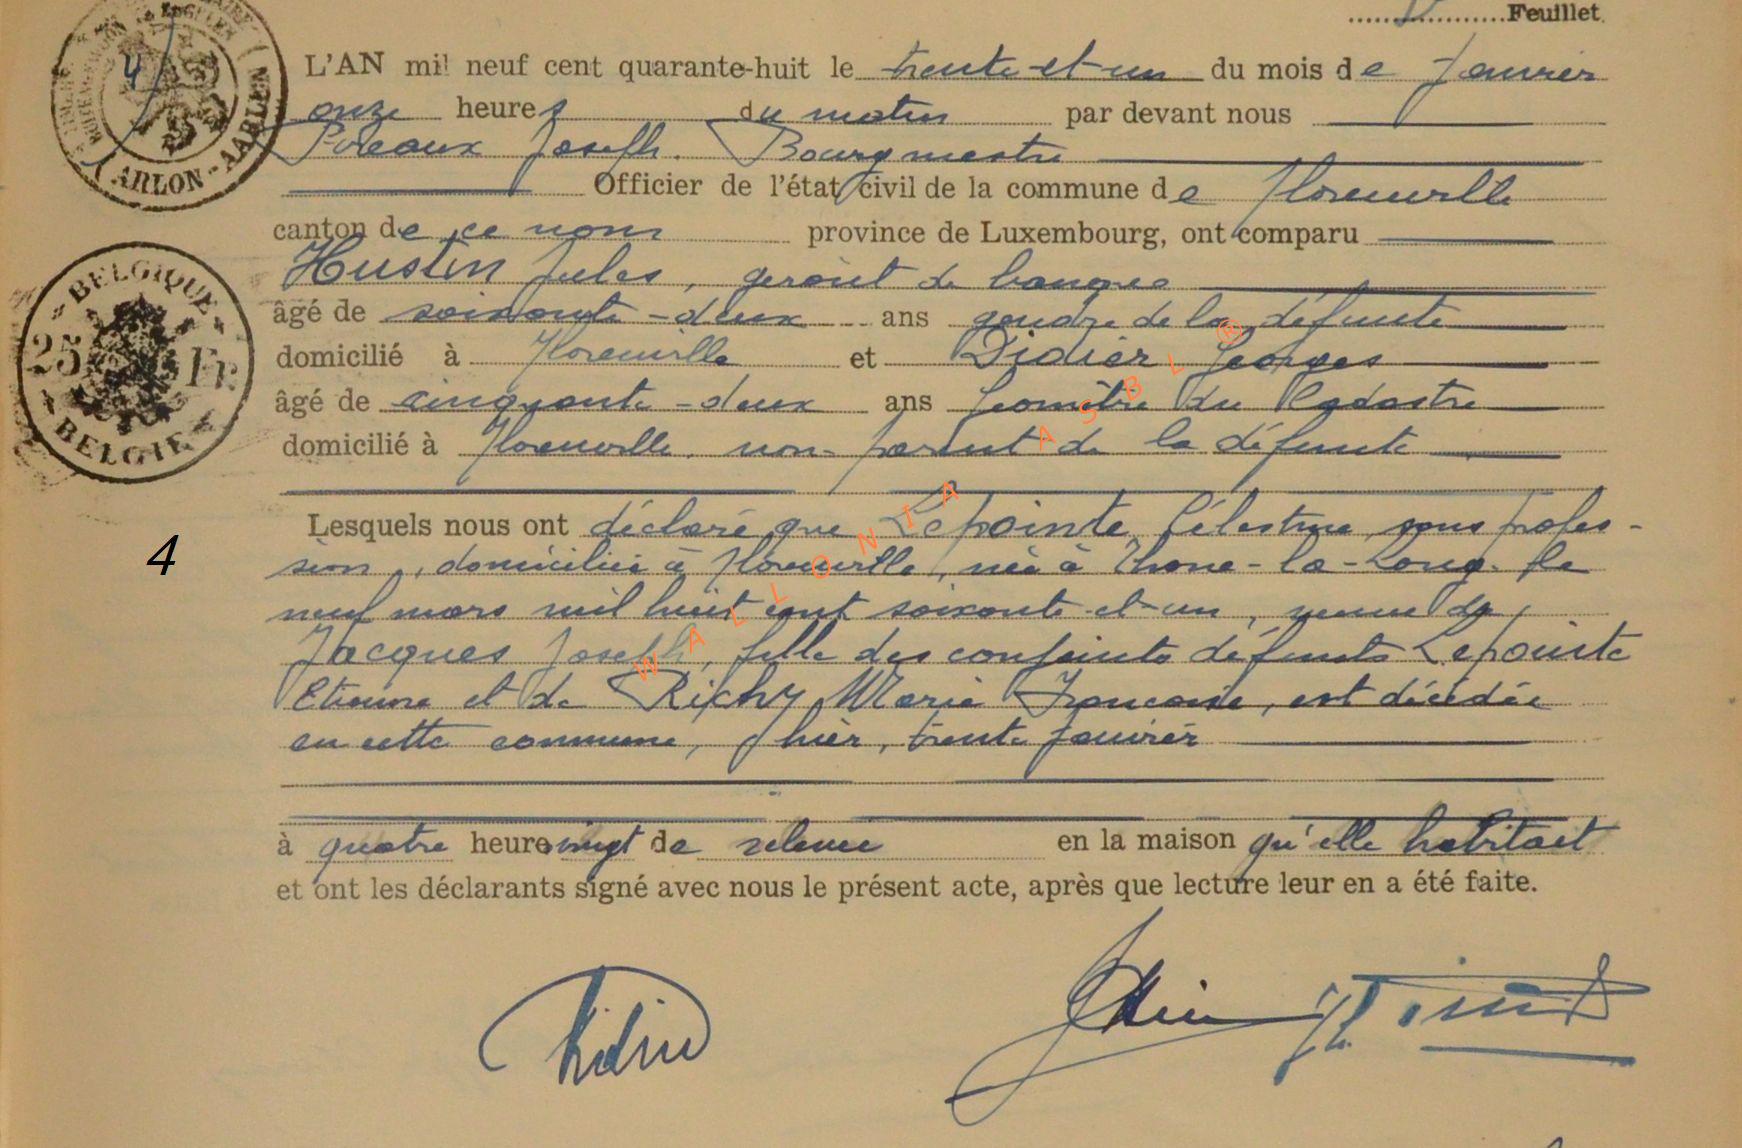 Feuillet
L'AN mil neuf cent quarante-huit le trente-et-un du mois de Janvier
onze heures du matin par devant nous
Pireaux Joseph. Bourgmestre
Officier de l'état civil de la commune de Florenville
canton de ce nom province de Luxembourg, ont comparu
Hustin Jules, gérant de banque
âgé de soixante-deux ans gendre de la défunte
domicilié à Florenville et Didier Georges
âgé de cinquante-deux ans Géomètre du Cadastre
domicilié à Florenville, non-parent de la défunte
Lesquels nous ont déclaré que Lepointe Célestine, sans profes-
sion, domiciliée à Florenville, née à Thone-la-Long le
neuf mars mil huit cent soixante-et-un, veuve de
Jacques Joseph, fille des conjoints défunts Lepointe
Etienne et de Richy Marie Françoise, est décédée
en cette commune, hier, trente janvier
à quatre heures vingt de relevée en la maison qu'elle habitait
et ont les déclarants signé avec nous le présent acte, après que lecture leur en a été faite.
4
4
ARLON-AARLEN
BELGIQUE
25 Fr.
BELGIE
WALLONIA ASBL ®
Didier